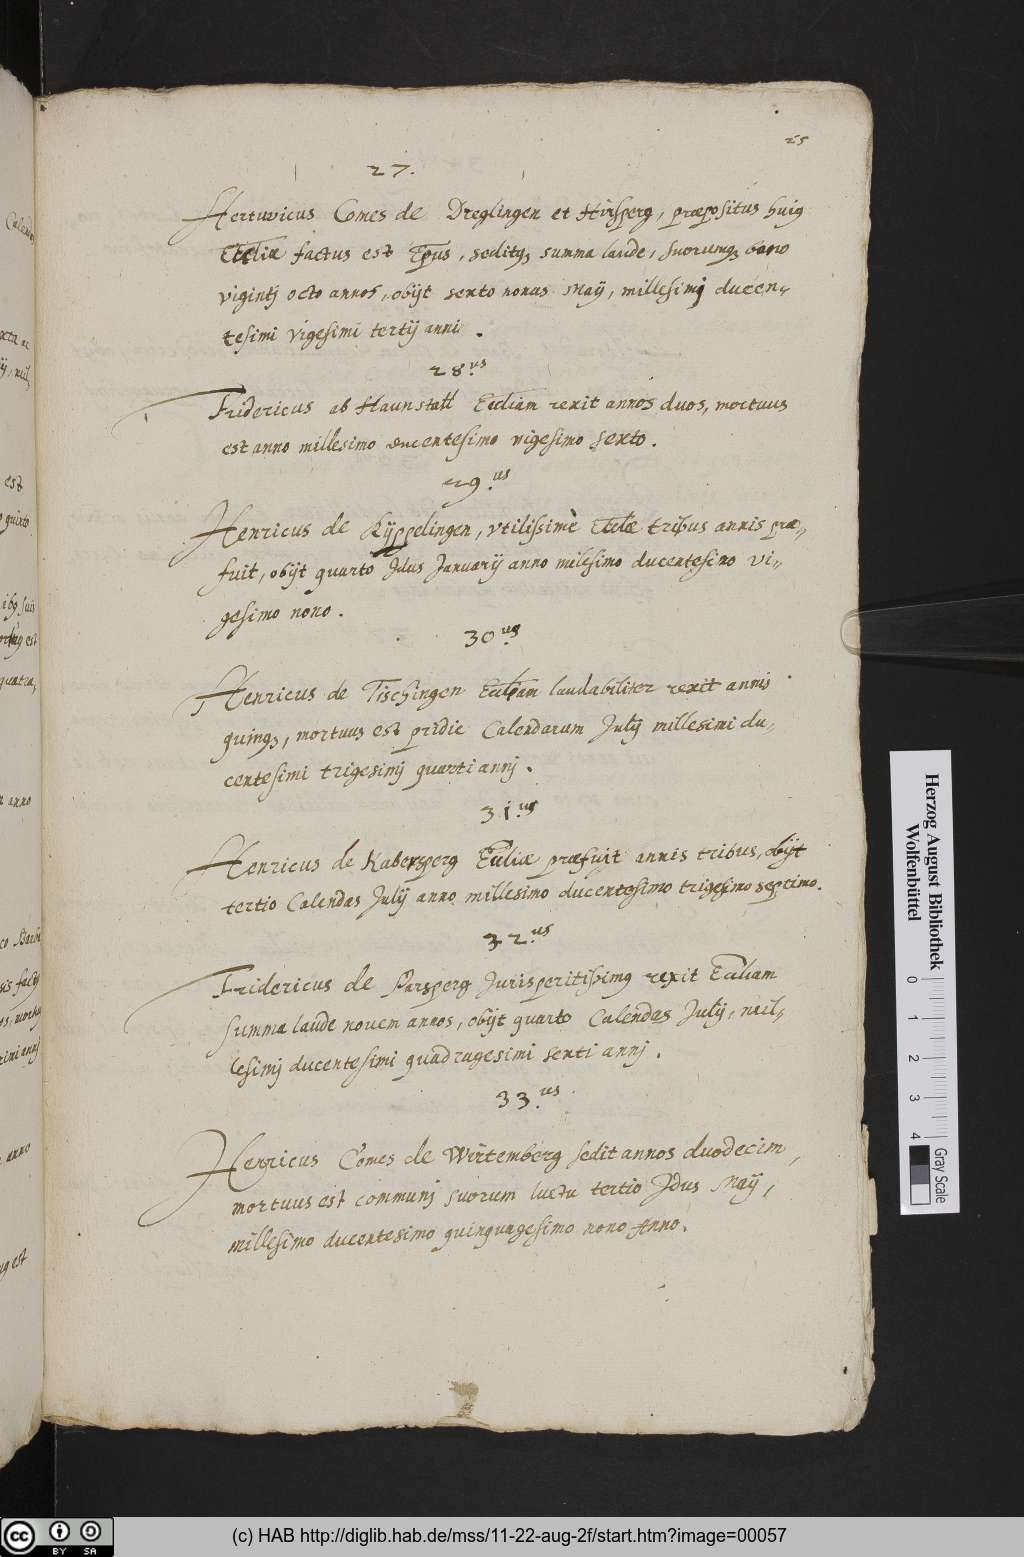 25
27.
Hertuuicus Comes de Dreglingen et Hirsperg, præpositus huiꝰ
Eccliæ factus est Epus, seditqꝫ summa laude, suorumqꝫ bono
vigintj octo annos, obijt sexto nonas Maij, millesimj ducen-
tesimi vigesimi tertij anni.
28.us
Fridericus ab Haunstatt Eccliam rexit annos duos, mortuus
est anno millesimo ducentesimo vigesimo sexto.
29.us
Henricus de Kÿppelingen, vtilissimè Eccliæ tribus annis præ-
fuit, obijt quarto Jdus Januarij anno millesimo ducentesimo vi-
gesimo nono.
30.us
Henricus de Tischingen Eccliam laudabiliter rexit annis
quinqꝫ, mortuus est pridie Calendarum Julij millesimi du-
centesimi trigesimj quarti annj.
31.us
Henricus de Rabensperg Eccliæ præfuit annis tribus, obijt
tertio Calendas Julij anno millesimo ducentesimo trigesimo septimo.
32.us
Fridericus de Parsperg Jurisperitissimꝰ rexit Eccliam
summa laude nouem annos, obijt quarto Calendas Julij, mil-
lesimj ducentesimi quadragesimi sexti annj.
33.us
Henricus Comes de Wirtemberg sedit annos duodecim,
mortuus est communj suorum luctu tertio Jdus Maij,
millesimo ducentesimo quinquagesimo nono Anno.
Herzog August Bibliothek
Wolfenbüttel
0 1 2 3 4
Gray Scale
cc BY SA
(c) HAB http://diglib.hab.de/mss/11-22-aug-2f/start.htm?image=00057